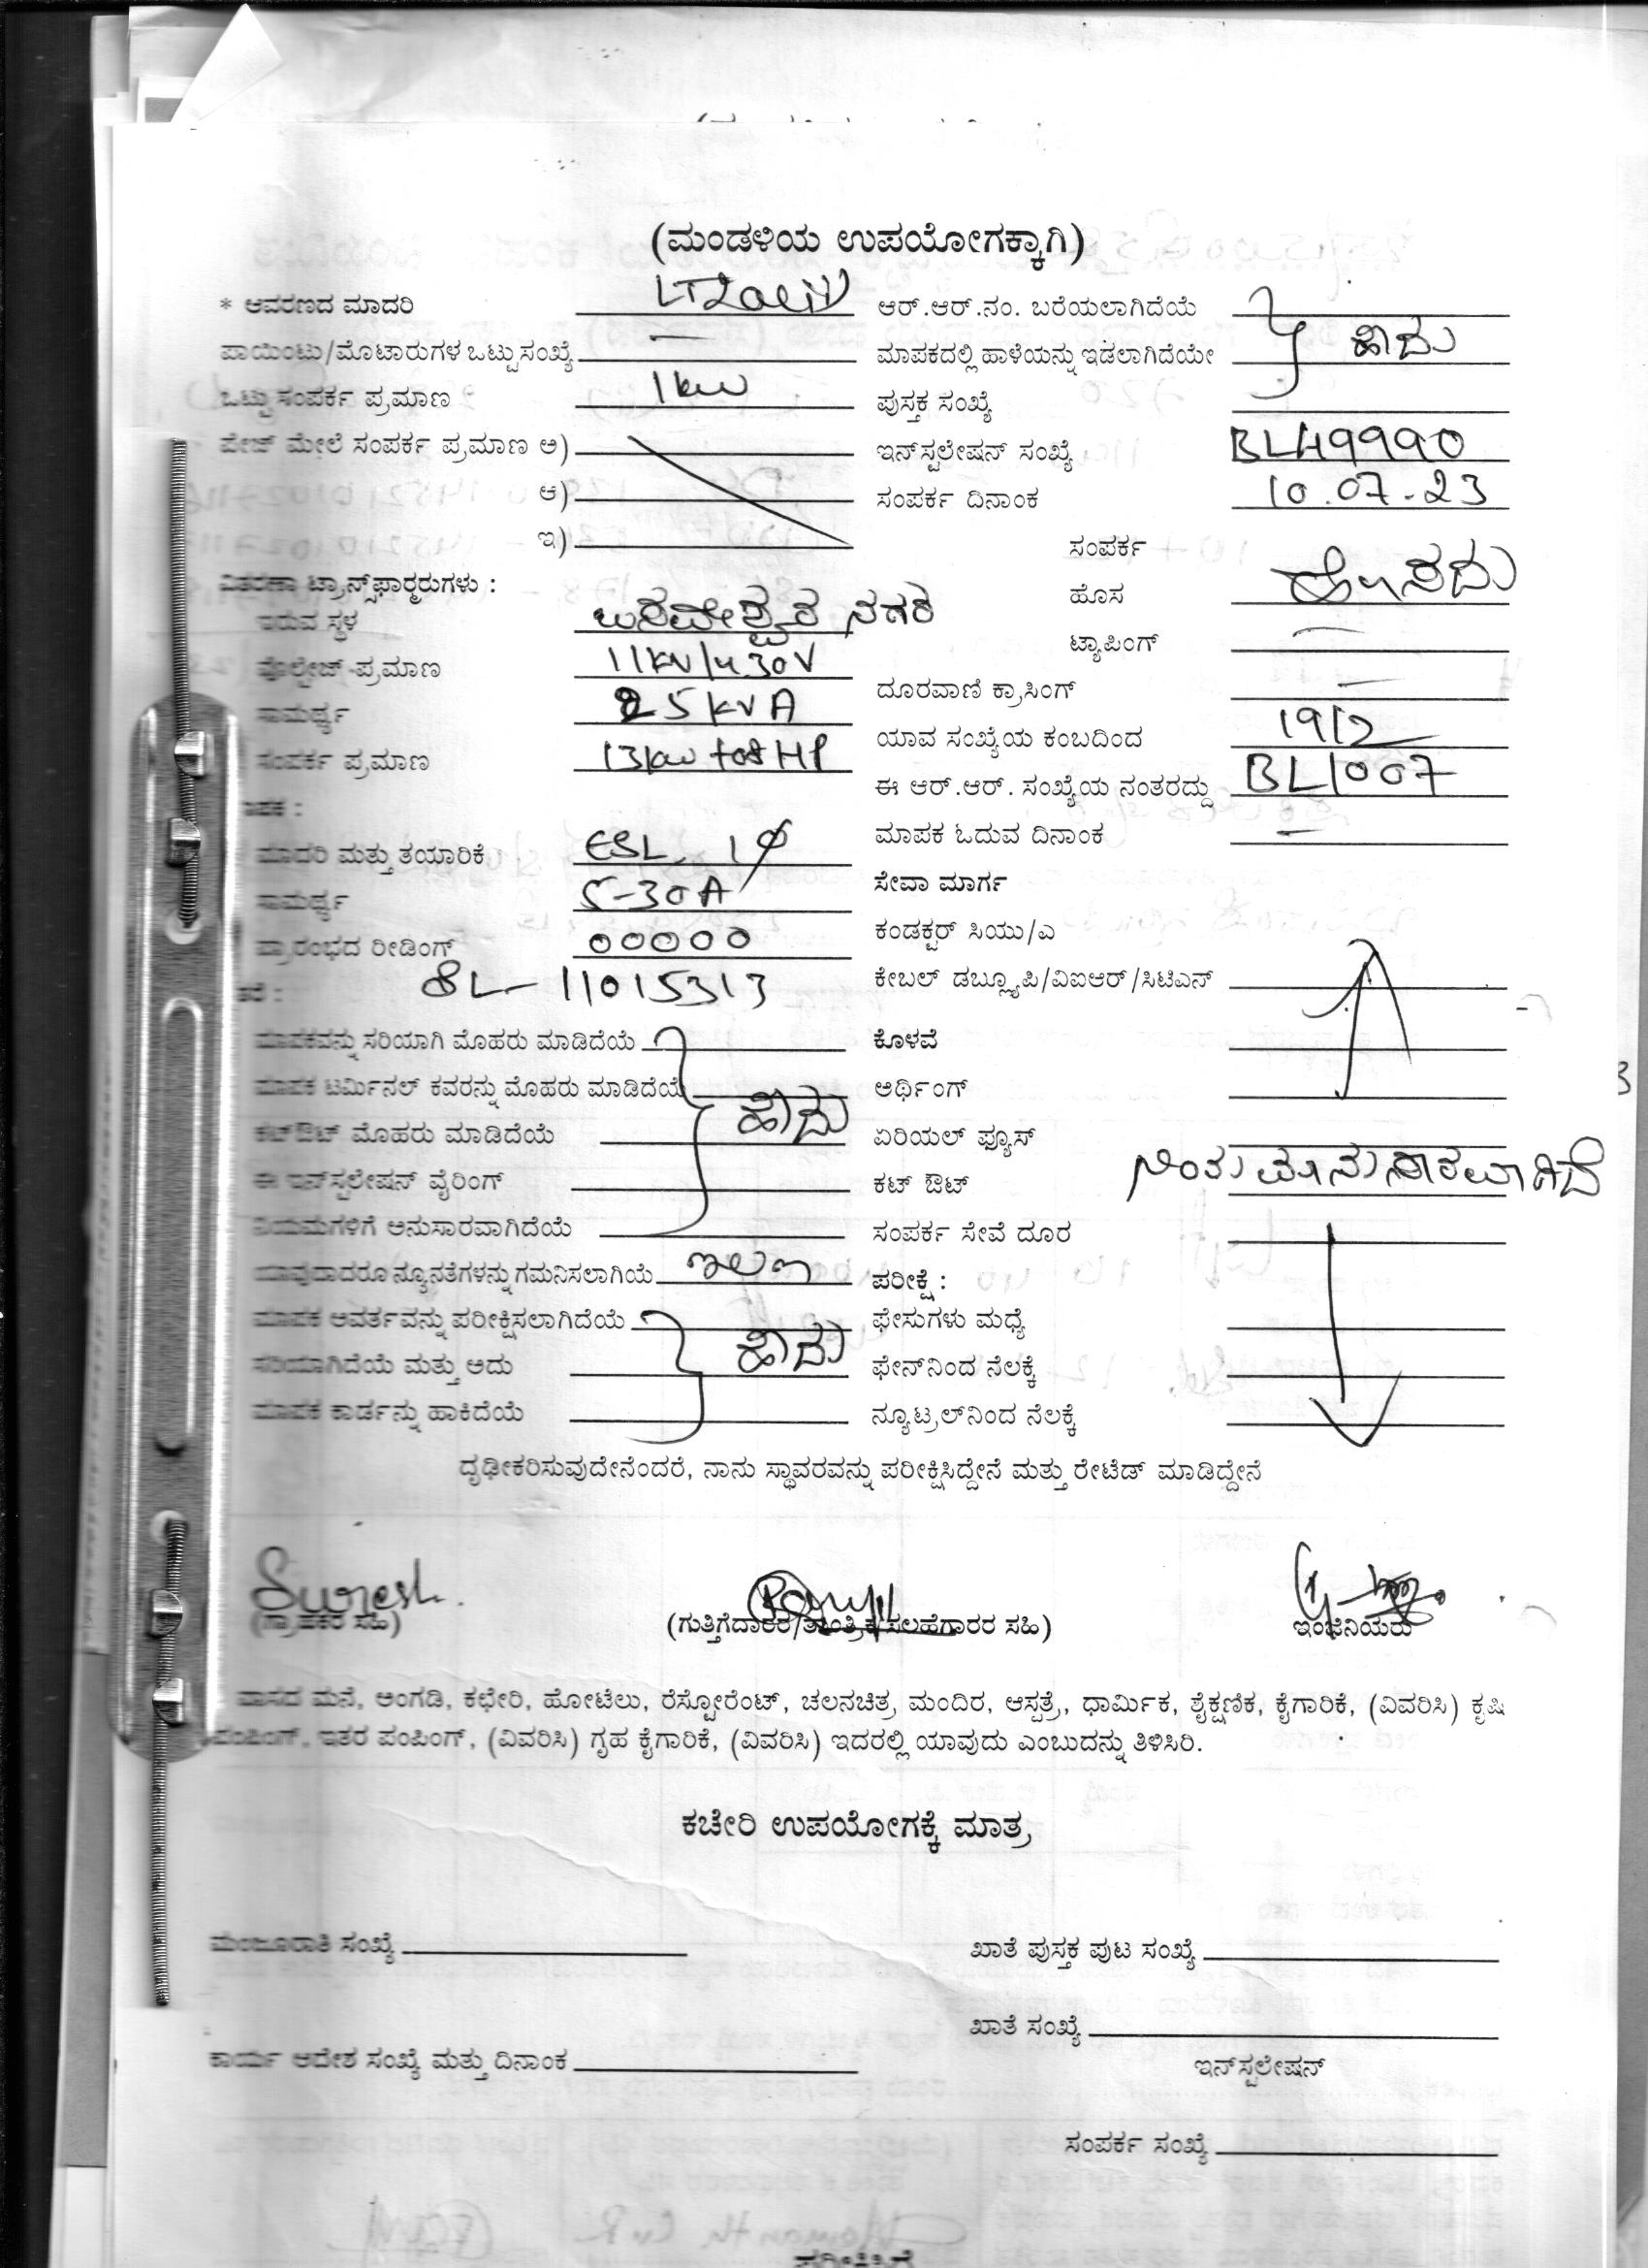 (ಮಂಡಳಿಯ ಉಪಯೋಗಕ್ಕಾಗಿ)
* ಆವರಣದ ಮಾದರಿ
ಆರ್.ಆರ್.ನಂ. ಬರೆಯಲಾಗಿದೆಯೆ
ಪಾಯಿಂಟು/ಮೊಟಾರುಗಳ ಒಟ್ಟು ಸಂಖ್ಯೆ —
ಮಾಪಕದಲ್ಲಿ ಹಾಳೆಯನ್ನು ಇಡಲಾಗಿದೆಯೇ ಹೌದು
ಒಟ್ಟು ಸಂಪರ್ಕ ಪ್ರಮಾಣ 1kw
ಪುಸ್ತಕ ಸಂಖ್ಯೆ
ಪೇಜ್ ಮೇಲೆ ಸಂಪರ್ಕ ಪ್ರಮಾಣ ಅ)
ಇನ್‌ಸ್ಟಲೇಷನ್ ಸಂಖ್ಯೆ BL49990
ಆ)
ಸಂಪರ್ಕ ದಿನಾಂಕ 10.07-23
ಇ)
ಸಂಪರ್ಕ
ವಿತರಣಾ ಟ್ರಾನ್ಸ್‌ಫಾರ್‍ಮರುಗಳು :
ಹೊಸ
ಇರುವ ಸ್ಥಳ ಬಸವೇಶ್ವರ ನಗರ
ಟ್ಯಾಪಿಂಗ್ —
ವೊಲ್ಟೇಜ್ ಪ್ರಮಾಣ 11kV/430V
ದೂರವಾಣಿ ಕ್ರಾಸಿಂಗ್ —
ಸಾಮರ್ಥ್ಯ 25kVA
ಯಾವ ಸಂಖ್ಯೆಯ ಕಂಬದಿಂದ 19/2
ಸಂಪರ್ಕ ಪ್ರಮಾಣ 13kw +08 HP
ಈ ಆರ್.ಆರ್. ಸಂಖ್ಯೆಯ ನಂತರದ್ದು BL1007
ಮಾಪಕ ಓದುವ ದಿನಾಂಕ —
ಮಾದರಿ ಮತ್ತು ತಯಾರಿಕೆ ESL, 1φ
ಸೇವಾ ಮಾರ್ಗ
ಸಾಮರ್ಥ್ಯ 5-30A
ಕಂಡಕ್ಟರ್ ಸಿಯು/ಎ
ಪ್ರಾರಂಭದ ರೀಡಿಂಗ್ 00000
ಕೇಬಲ್ ಡಬ್ಲ್ಯೂಪಿ/ವಿಐಆರ್/ಸಿಟಿಎನ್
SL- 11015313
ಮಾಪಕವನ್ನು ಸರಿಯಾಗಿ ಮೊಹರು ಮಾಡಿದೆಯೆ
ಕೊಳವೆ
ಮಾಪಕ ಟರ್ಮಿನಲ್ ಕವರನ್ನು ಮೊಹರು ಮಾಡಿದೆಯೆ ಹೌದು
ಅರ್ಥಿಂಗ್
ಕಟ್‌ಔಟ್ ಮೊಹರು ಮಾಡಿದೆಯೆ
ಏರಿಯಲ್ ಫ್ಯೂಸ್
ಈ ಇನ್‌ಸ್ಟಲೇಷನ್ ವೈರಿಂಗ್
ಕಟ್ ಔಟ್
ನಿಯಮಗಳಿಗೆ ಅನುಸಾರವಾಗಿದೆಯೆ
ಸಂಪರ್ಕ ಸೇವೆ ದೂರ
ಯಾವುದಾದರೂ ನ್ಯೂನತೆಗಳನ್ನು ಗಮನಿಸಲಾಗಿಯೆ ಇಲ್ಲ
ಪರೀಕ್ಷೆ :
ಮಾಪಕ ಆವರ್ತವನ್ನು ಪರೀಕ್ಷಿಸಲಾಗಿದೆಯೆ
ಫೇಸುಗಳು ಮಧ್ಯೆ
ಸರಿಯಾಗಿದೆಯೆ ಮತ್ತು ಅದು ಹೌದು
ಫೇಸ್‌ನಿಂದ ನೆಲಕ್ಕೆ
ಮಾಪಕ ಕಾರ್ಡನ್ನು ಹಾಕಿದೆಯೆ
ನ್ಯೂಟ್ರಲ್‌ನಿಂದ ನೆಲಕ್ಕೆ
ದೃಢೀಕರಿಸುವುದೇನೆಂದರೆ, ನಾನು ಸ್ಥಾವರವನ್ನು ಪರೀಕ್ಷಿಸಿದ್ದೇನೆ ಮತ್ತು ರೇಟೆಡ್ ಮಾಡಿದ್ದೇನೆ
Suresh.
(ಗ್ರಾಹಕರ ಸಹಿ) (ಗುತ್ತಿಗೆದಾರರ/ತಾಂತ್ರಿಕ ಸಲಹೆಗಾರರ ಸಹಿ) ಇಂಜಿನಿಯರು
ವಾಸದ ಮನೆ, ಅಂಗಡಿ, ಕಛೇರಿ, ಹೋಟೆಲು, ರೆಸ್ಟೋರೆಂಟ್, ಚಲನಚಿತ್ರ ಮಂದಿರ, ಆಸ್ಪತ್ರೆ, ಧಾರ್ಮಿಕ, ಶೈಕ್ಷಣಿಕ, ಕೈಗಾರಿಕೆ, (ವಿವರಿಸಿ) ಕೃಷಿ
ಪಂಪಿಂಗ್, ಇತರ ಪಂಪಿಂಗ್, (ವಿವರಿಸಿ) ಗೃಹ ಕೈಗಾರಿಕೆ, (ವಿವರಿಸಿ) ಇದರಲ್ಲಿ ಯಾವುದು ಎಂಬುದನ್ನು ತಿಳಿಸಿರಿ.
ಕಚೇರಿ ಉಪಯೋಗಕ್ಕೆ ಮಾತ್ರ
ಮಂಜೂರಾತಿ ಸಂಖ್ಯೆ
ಖಾತೆ ಪುಸ್ತಕ ಪುಟ ಸಂಖ್ಯೆ
ಖಾತೆ ಸಂಖ್ಯೆ
ಕಾರ್ಯ ಆದೇಶ ಸಂಖ್ಯೆ ಮತ್ತು ದಿನಾಂಕ
ಇನ್‌ಸ್ಟಲೇಷನ್
ಸಂಪರ್ಕ ಸಂಖ್ಯೆ